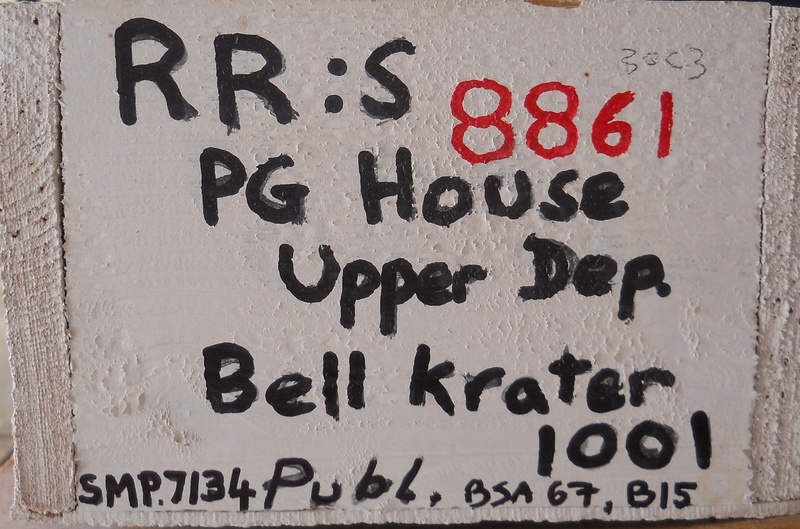 RR:S
30C3
8861
PG House
Upper Dep.
Bell krater
1001
SMP.7134 Publ. BSA 67, B15